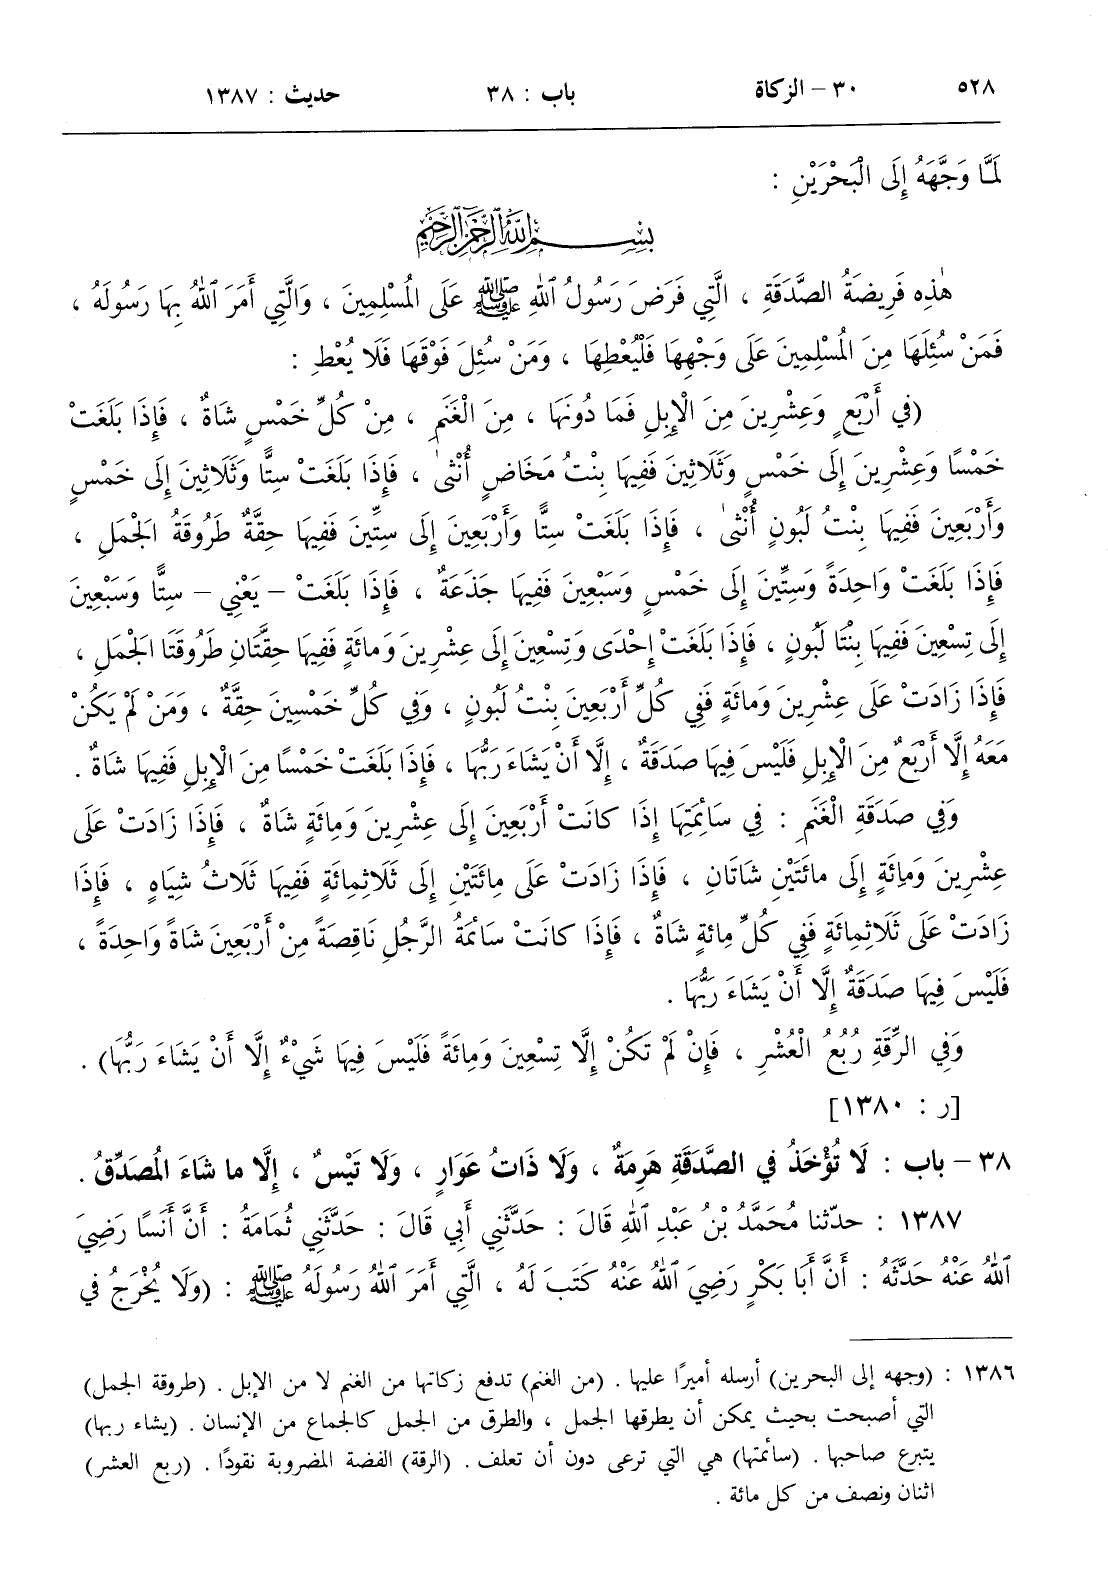 ٥٢٨ ٣٠ – الزكاة باب : ٣٨ حديث : ١٣٨٧
لَمَّا وَجَّهَهُ إِلَى الْبَحْرَيْنِ :
بِسْمِ اللهِ الرَّحْمٰنِ الرَّحِيمِ
هٰذِهِ فَرِيضَةُ الصَّدَقَةِ ، الَّتِي فَرَضَ رَسُولُ ٱللهِ ﷺ عَلَى الْمُسْلِمِينَ ، وَالَّتِي أَمَرَ ٱللهُ بِهَا رَسُولَهُ ،
فَمَنْ سُئِلَهَا مِنَ الْمُسْلِمِينَ عَلَى وَجْهِهَا فَلْيُعْطِهَا ، وَمَنْ سُئِلَ فَوْقَهَا فَلَا يُعْطِ :
(فِي أَرْبَعٍ وَعِشْرِينَ مِنَ الْإِبِلِ فَمَا دُونَهَا ، مِنَ الْغَنَمِ ، مِنْ كُلِّ خَمْسٍ شَاةٌ ، فَإِذَا بَلَغَتْ
خَمْسًا وَعِشْرِينَ إِلَى خَمْسٍ وَثَلَاثِينَ فَفِيهَا بِنْتُ مَخَاضٍ أُنْثىٰ ، فَإِذَا بَلَغَتْ سِتًّا وَثَلَاثِينَ إِلَى خَمْسٍ
وَأَرْبَعِينَ فَفِيهَا بِنْتُ لَبُونٍ أُنْثىٰ ، فَإِذَا بَلَغَتْ سِتًّا وَأَرْبَعِينَ إِلَى سِتِّينَ فَفِيهَا حِقَّةٌ طَرُوقَةُ الْجَمَلِ ،
فَإِذَا بَلَغَتْ وَاحِدَةً وَسِتِّينَ إِلَى خَمْسٍ وَسَبْعِينَ فَفِيهَا جَذَعَةٌ ، فَإِذَا بَلَغَتْ – يَعْنِي – سِتًّا وَسَبْعِينَ
إِلَى تِسْعِينَ فَفِيهَا بِنْتَا لَبُونٍ ، فَإِذَا بَلَغَتْ إِحْدَى وَتِسْعِينَ إِلَى عِشْرِينَ وَمِائَةٍ فَفِيهَا حِقَّتَانِ طَرُوقَتَا الْجَمَلِ ،
فَإِذَا زَادَتْ عَلَى عِشْرِينَ وَمِائَةٍ فَفِي كُلِّ أَرْبَعِينَ بِنْتُ لَبُونٍ ، وَفِي كُلِّ خَمْسِينَ حِقَّةٌ ، وَمَنْ لَمْ يَكُنْ
مَعَهُ إِلَّا أَرْبَعٌ مِنَ الْإِبِلِ فَلَيْسَ فِيهَا صَدَقَةٌ ، إِلَّا أَنْ يَشَاءَ رَبُّهَا ، فَإِذَا بَلَغَتْ خَمْسًا مِنَ الْإِبِلِ فَفِيهَا شَاةٌ .
وَفِي صَدَقَةِ الْغَنَمِ : فِي سَائِمَتِهَا إِذَا كانَتْ أَرْبَعِينَ إِلَى عِشْرِينَ وَمِائَةٍ شَاةٌ ، فَإِذَا زَادَتْ عَلَى
عِشْرِينَ وَمِائَةٍ إِلَى مائَتَيْنِ شَاتَانِ ، فَإِذَا زَادَتْ عَلَى مِائَتَيْنِ إِلَى ثَلَاثِمِائَةٍ فَفِيهَا ثَلَاثُ شِيَاهٍ ، فَإِذَا
زَادَتْ عَلَى ثَلَاثِمِائَةٍ فَفِي كُلِّ مِائةٍ شَاةٌ ، فَإِذَا كانَتْ سَائِمَةُ الرَّجُلِ نَاقِصَةً مِنْ أَرْبَعِينَ شَاةً وَاحِدَةً ،
فَلَيْسَ فِيهَا صَدَقَةٌ إِلَّا أَنْ يَشَاءَ رَبُّهَا .
وَفِي الرِّقَةِ رُبُعُ الْعُشْرِ ، فَإِنْ لَمْ تَكُنْ إِلَّا تِسْعِينَ وَمِائَةً فَلَيْسَ فِيهَا شَيْءٌ إِلَّا أَنْ يَشَاءَ رَبُّهَا) .
[ر : ١٣٨٠]
٣٨ – باب : لَا تُؤْخَذُ فِي الصَّدَقَةِ هَرِمَةٌ ، وَلَا ذَاتُ عَوَارٍ ، وَلَا تَيْسٌ ، إِلَّا ما شَاءَ الْمُصَدِّقُ .
١٣٨٧ : حدّثنا مُحَمَّدُ بْنُ عَبْدِ ٱللهِ قَالَ : حَدَّثَنِي أَبِي قَالَ : حَدَّثَنِي ثُمَامَةُ : أَنَّ أَنَسًا رَضِيَ
ٱللهُ عَنْهُ حَدَّثَهُ : أَنَّ أَبَا بَكْرٍ رَضِيَ ٱللهُ عَنْهُ كَتَبَ لَهُ ، الَّتِي أَمَرَ ٱللهُ رَسُولَهُ ﷺ : (وَلَا يُخْرَجُ فِي
١٣٨٦ : (وجهه إلى البحرين) أرسله أميرًا عليها . (من الغنم) تدفع زكاتها من الغنم لا من الإبل . (طروقة الجمل)
التي أصبحت بحيث يمكن أن يطرقها الجمل ، والطرق من الجمل كالجماع من الإنسان . (يشاء ربها)
يتبرع صاحبها . (سائمتها) هي التي ترعى دون أن تعلف . (الرقة) الفضة المضروبة نقودًا . (ربع العشر)
اثنان ونصف من كل مائة .